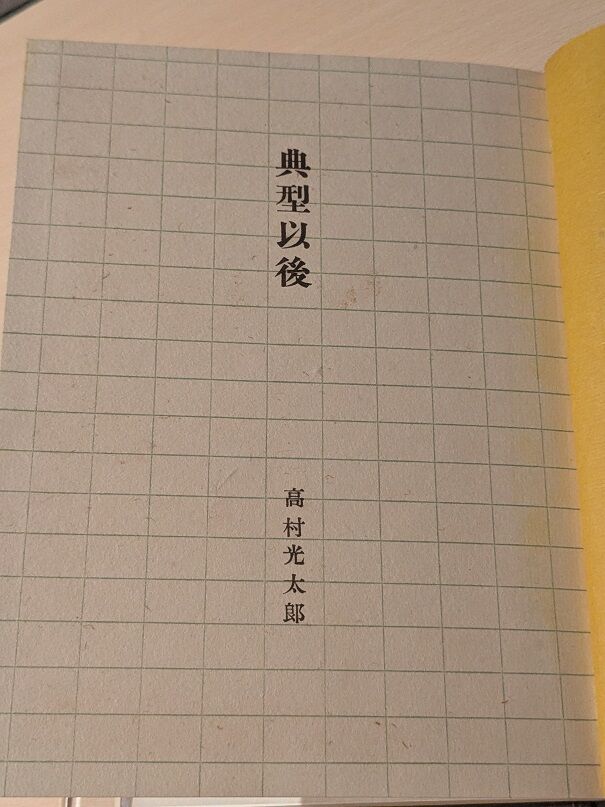 典型以後
高村光太郎